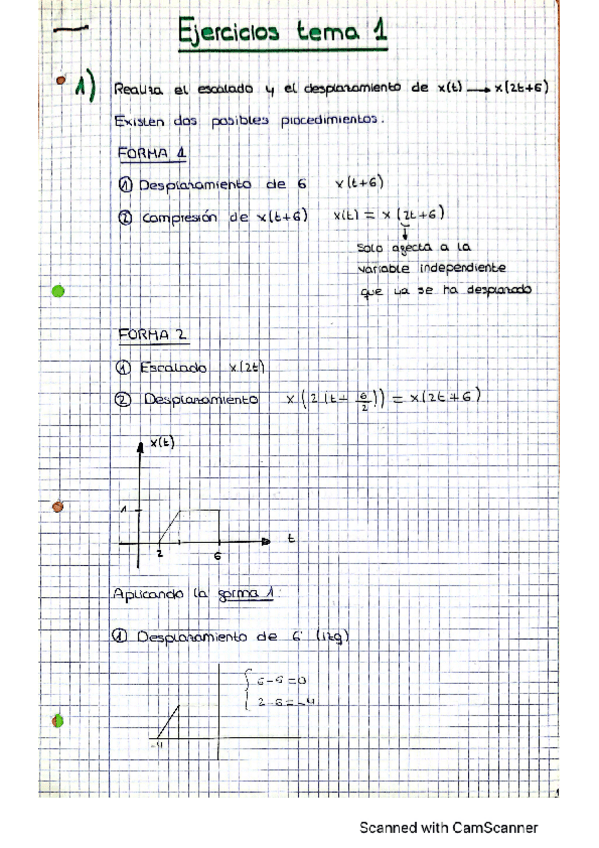 Ejercicios tema 1
1) Realiza el escalado y el desplazamiento de x(t) → x(2t+6)
Existen dos posibles procedimientos.
FORMA 1
① Desplazamiento de 6 x(t+6)
② Compresión de x(t+6) x(t) = x(2t+6)
↓
Solo afecta a la
variable independiente
que ya se ha desplazado
FORMA 2
① Escalado x(2t)
② Desplazamiento x(2(t+6/2)) = x(2t+6)
x(t)
1
t
2
6
Aplicando la forma 1:
① Desplazamiento de 6 (izq)
6-6=0
2-6=-4
-4
Scanned with CamScanner